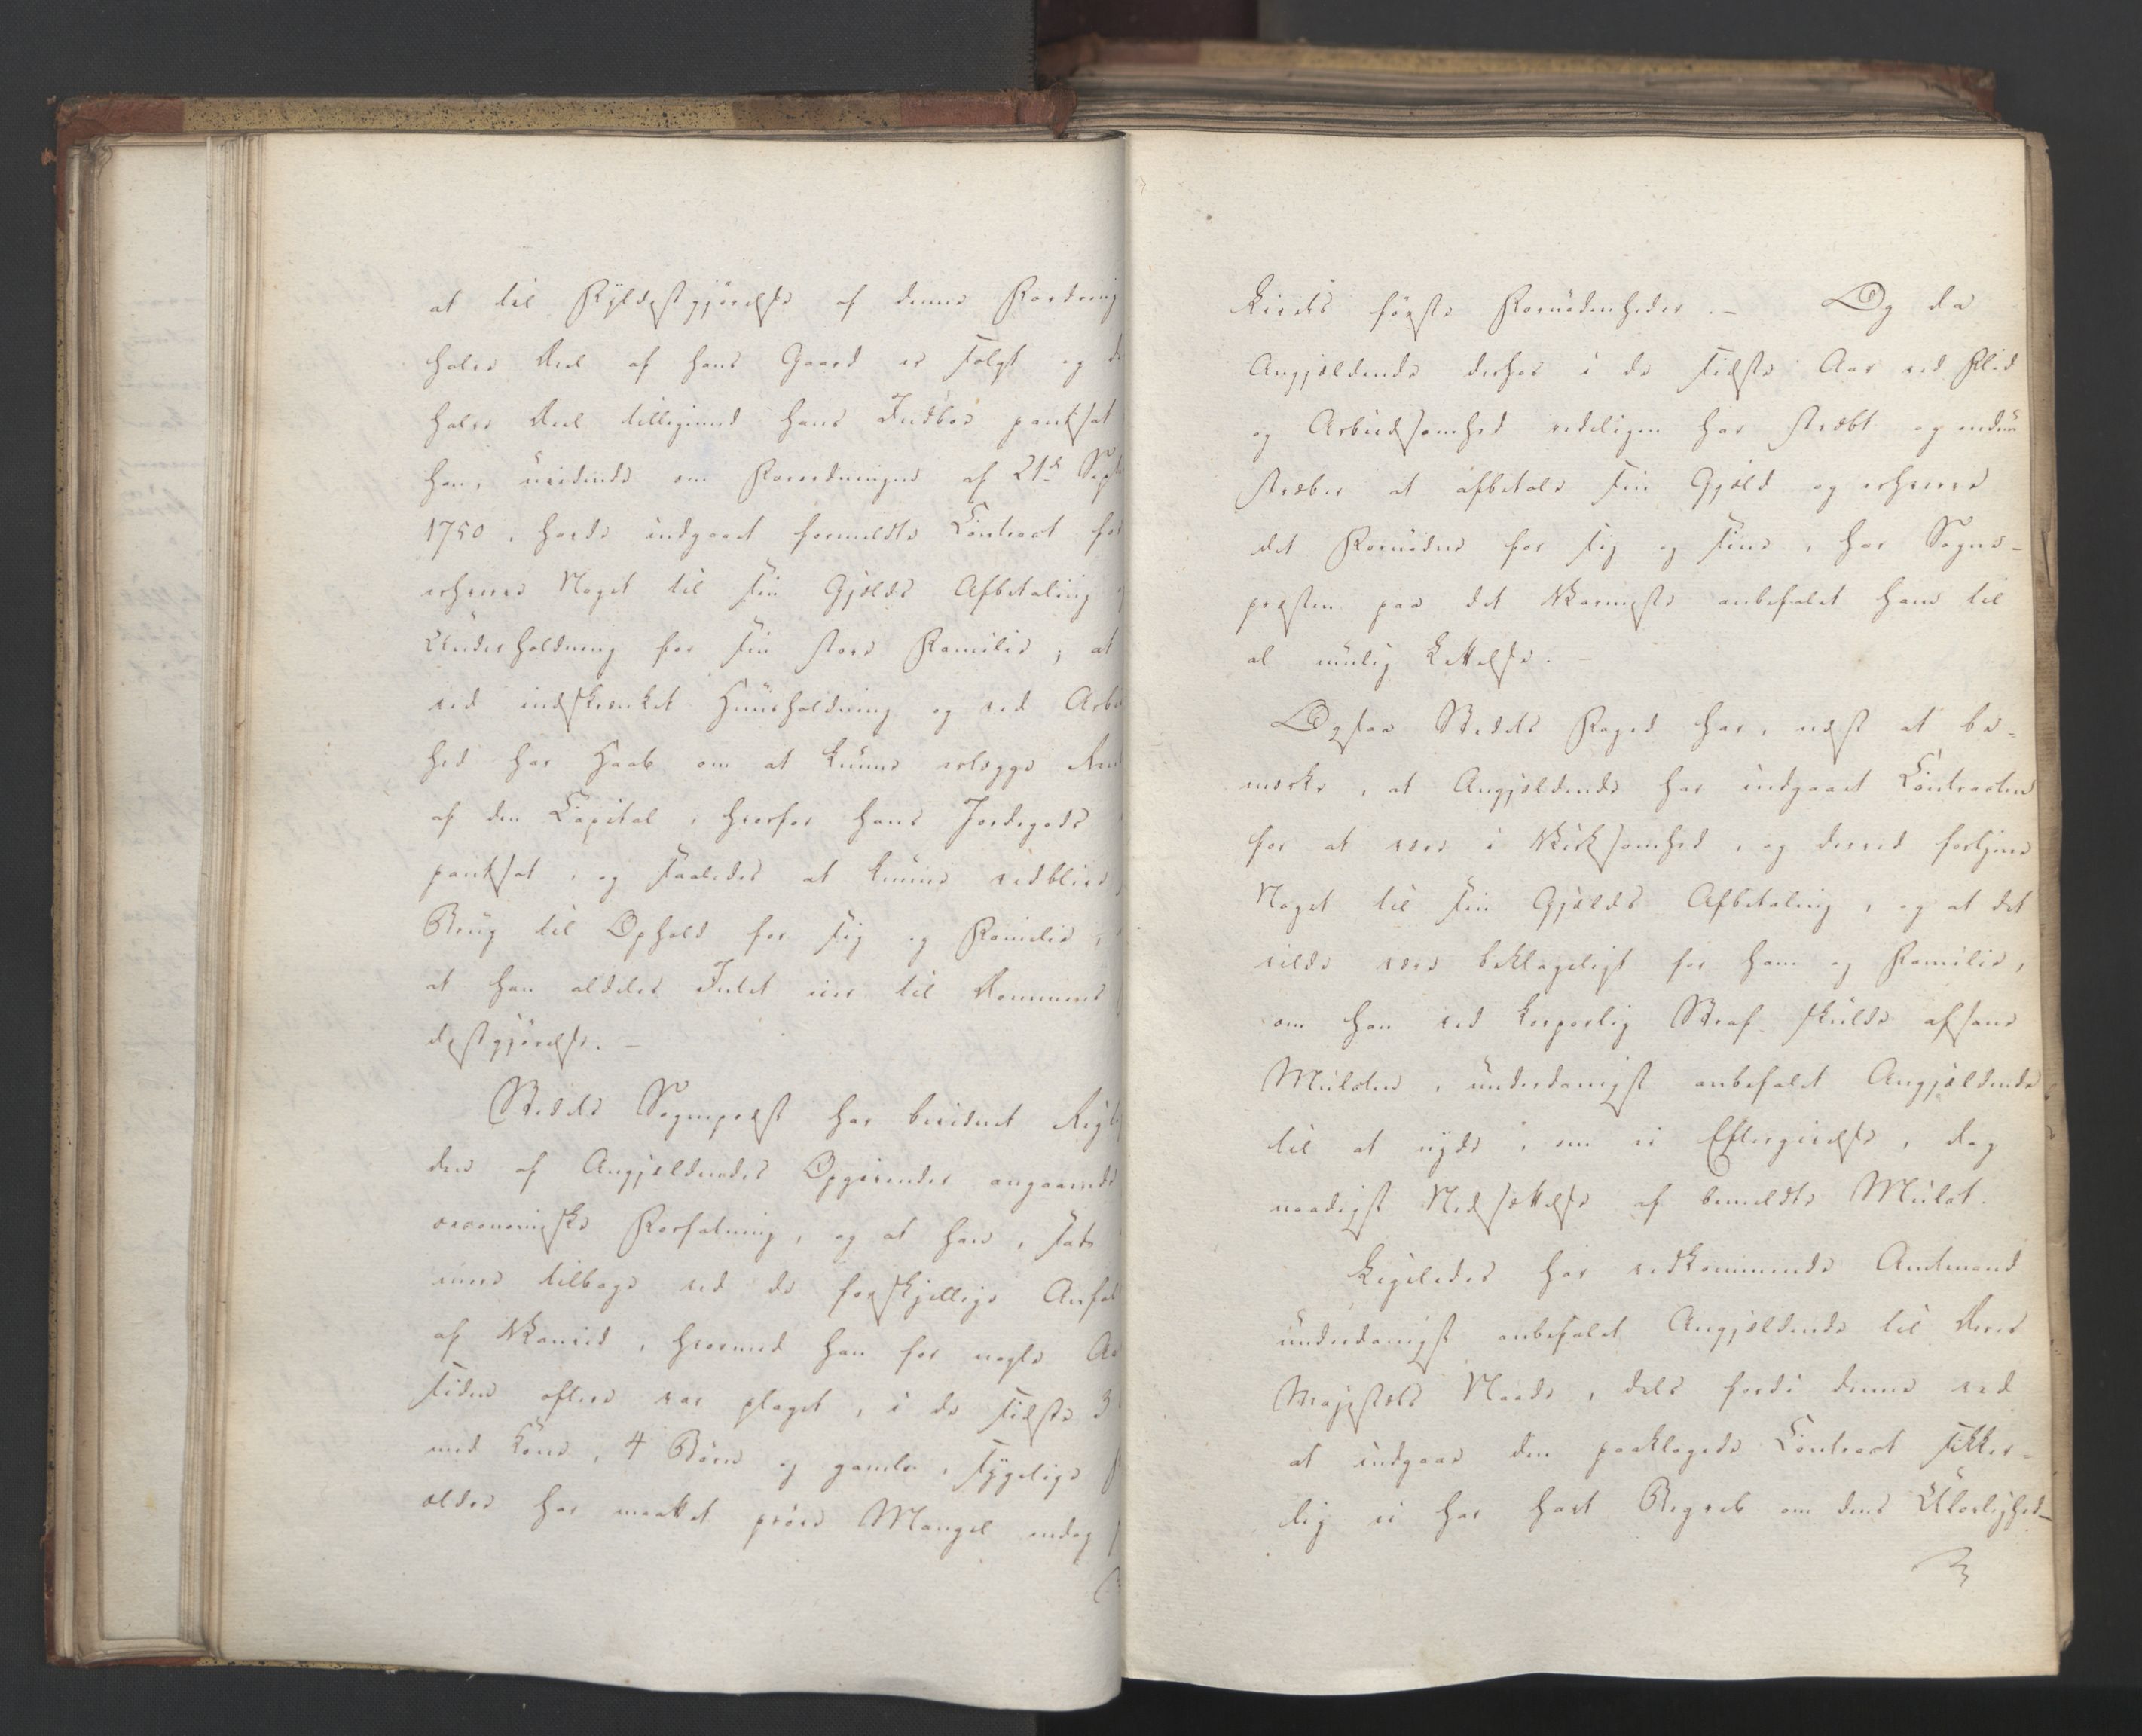 at til Fyldestgjørelse af denne Fordring
halve Deel af hans Gaard er solgt og
halve Deel tilligemed hans Indboe pantsat
han, uvidende om Forordningen af 21de Sept
1750, havde indgaaet formeldte Contract for
erhverve Noget til sin Gjelds Afbetaling
Underholdning for sin store Familie; at
ved indskrænket Huusholdning og ved Arb
hed har Haab om at kunne erlægge Ren
af den Capital, hvorfor hans Jordegods
pantsat, og saaledes at kunne vedblive
Brug til Ophold for sig og Familie,
at han aldeles Intet eier til Dommens
destgjørelse. –
Stedets Sognepræst har bevidnet Rigtig
den af Angjeldendes Opgivender angaaende
oeconomiske Forfatning, og at han, sat
mere tilbage ved de forskjellige Anfal
af Vanvid, hvormed han for nogle Aar
siden oftere var plaget, i de sidste 3
med Kone, 4 Børn og gamle, sygelige F
ældre har maattet prøve Mangel endog
Livets første Fornødenheder. – Og da
Angjeldende derhos i de sidste Aar ved Flid
og Arbeidsomhed redeligen har stræbt og endnu
stræber at afbetale sin Gjeld og erhverve
det Fornødne for sig og Sine, har Sogne-
præsten paa det Varmeste anbefalet ham til
al muelig Lettelse. –
Ogsaa Stedets Foged har, næst at be-
mærke, at Angjeldende har indgaaet Contracten
for at være i Virksomhed, og derved fortjene
Noget til sin Gjelds Afbetaling, og at det
vilde være beklageligt for ham og Familie,
om han ved korporlig Straf skulde afsone
Mulcten, underdanigst anbefalet Angjeldende
til at nyde, om ei Eftergivelse, dog
naadigst Nedsættelse af bemeldte Mulct.
Ligeledes har vedkommende Amtmand
underdanigst anbefalet Angjeldende til Deres
Majestæts Naade, dels fordi denne ved
at indgaae den paaklagede Contract sikker-
lig ei har havt Begreb om dens Ulovlighed –